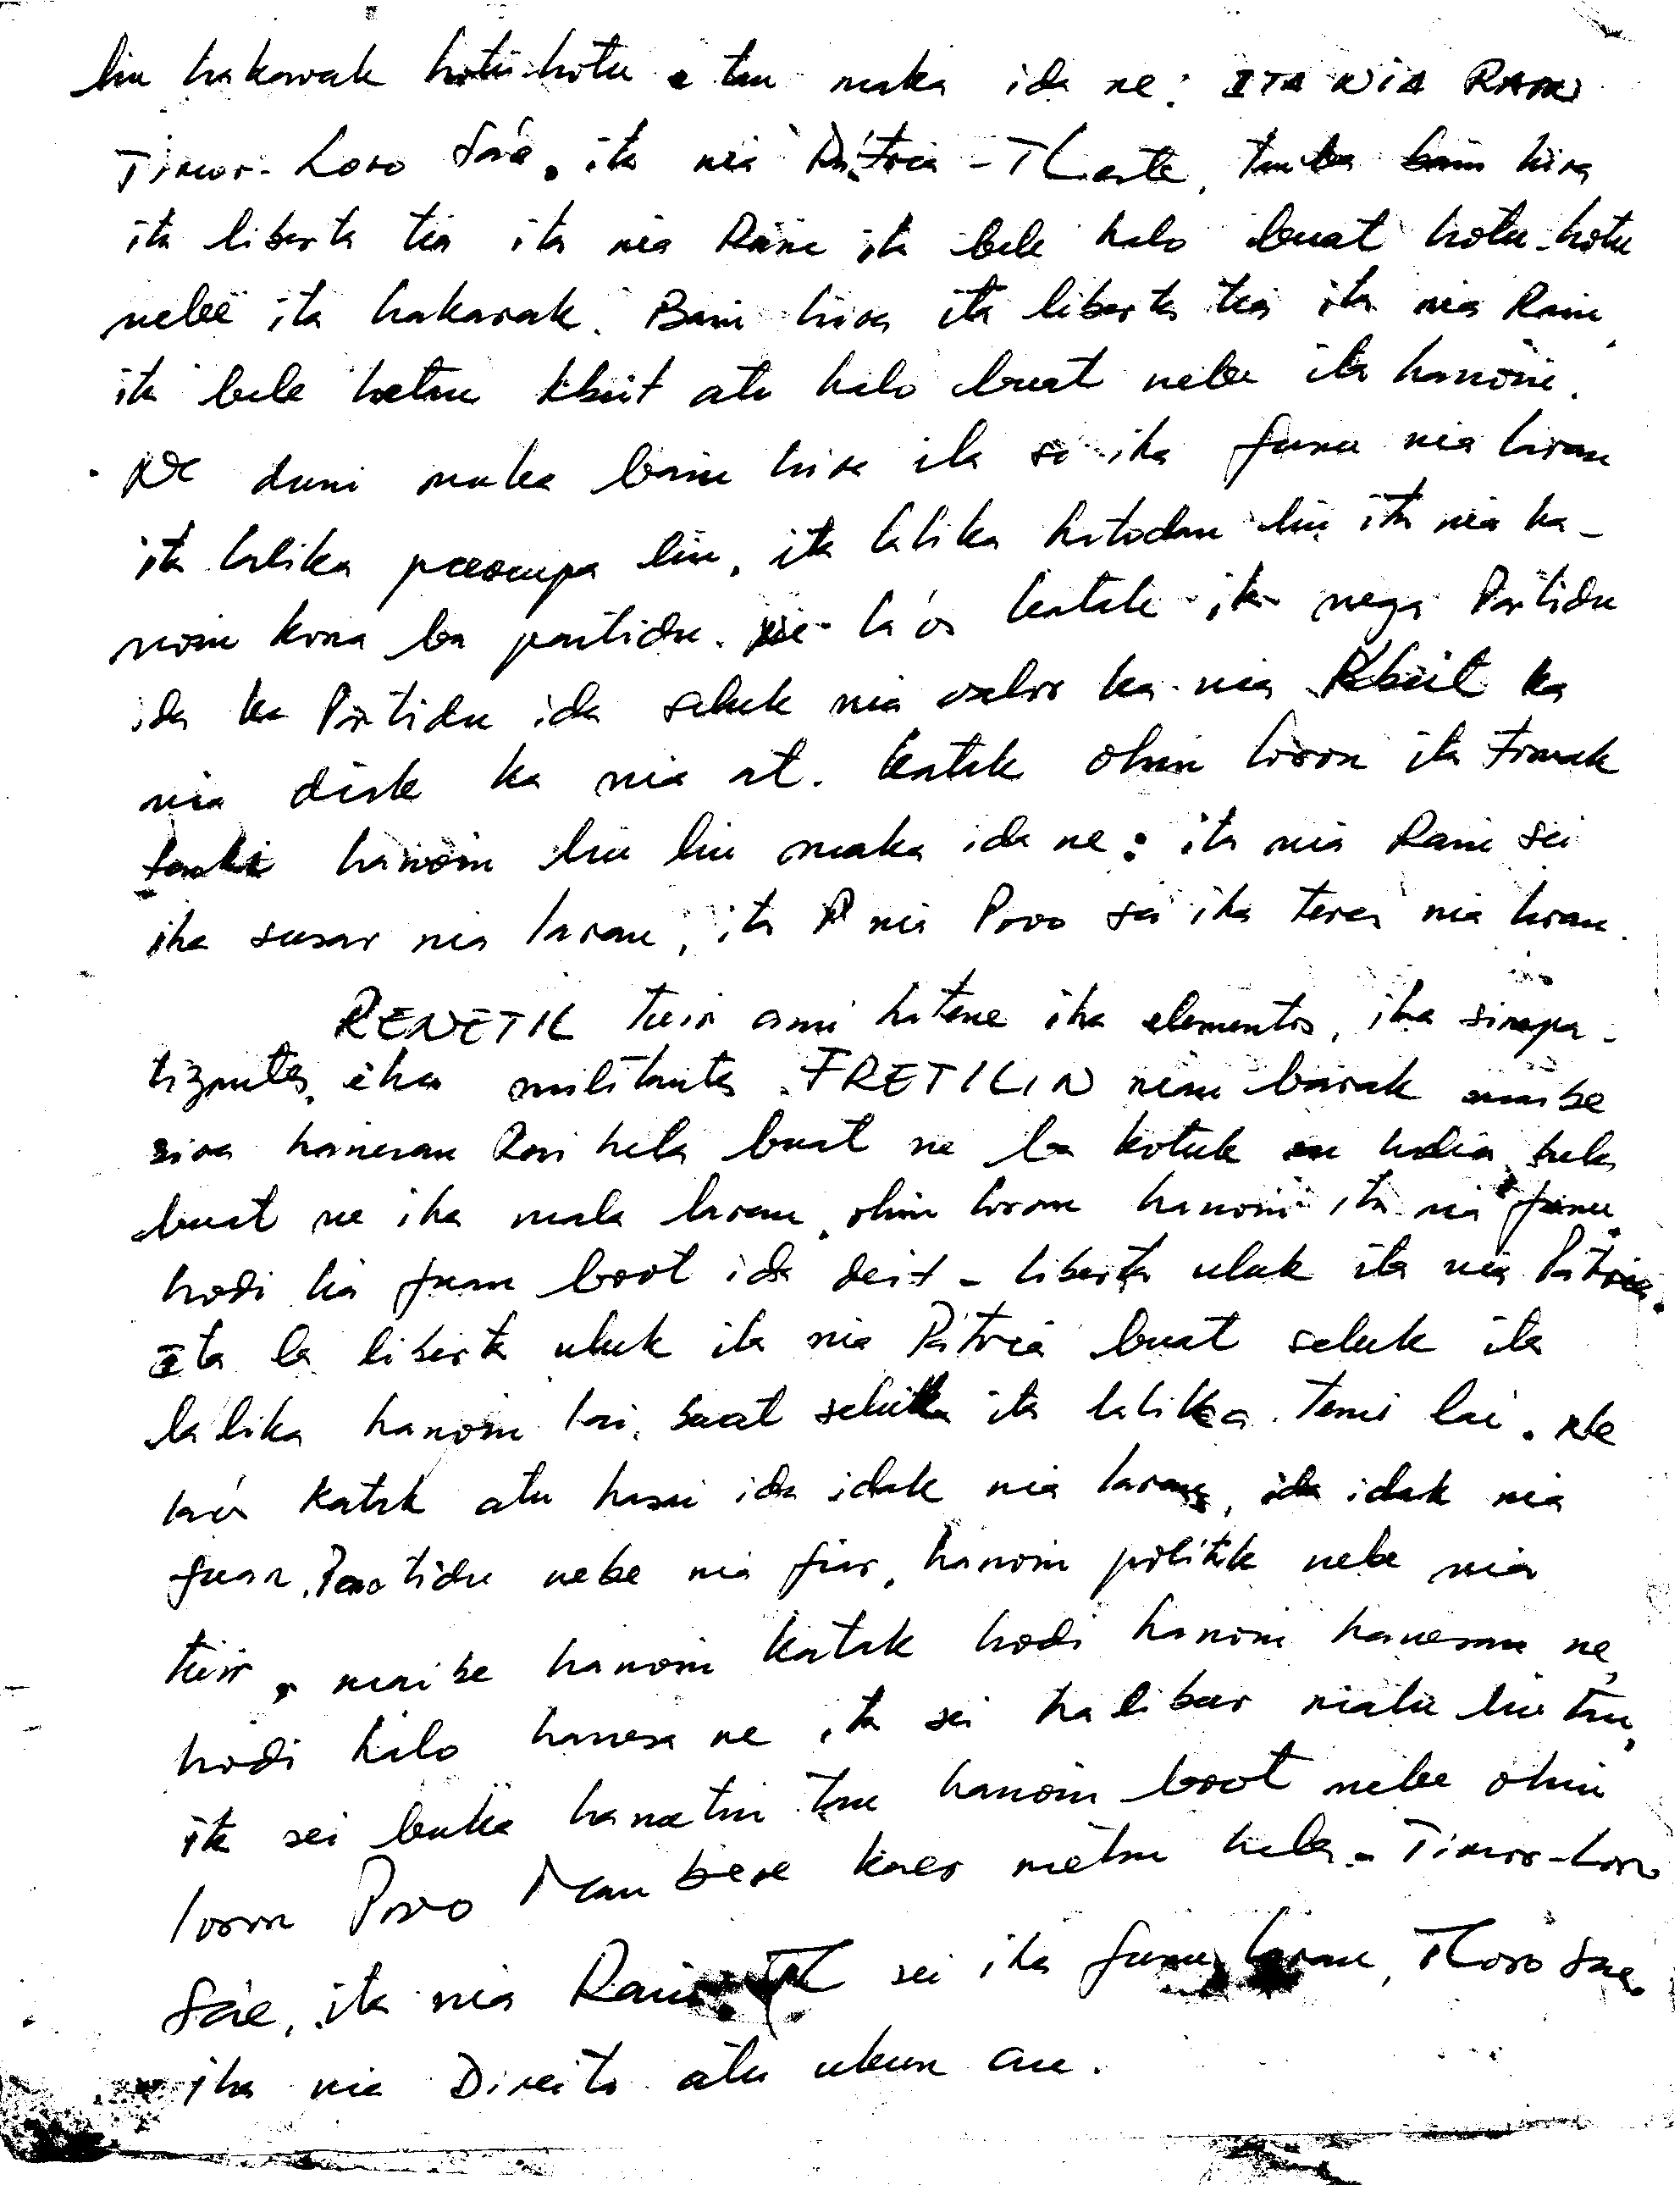 liu hakarak hotu-hotu tau maka ida ne: ITA NIA RAIN
Timor-Loro Sáe, ita nia Pátria - TLeste, tuba bain hira
ita liberta tia ita nia Rain ita bele halo buat hotu-hotu
nebé ita hakarak. Bain hira ita liberta tia ita nia Rain,
ita bele hetan kbiit atu halo buat nebe ita hanoin.
Ne duni maka bain hira ita sei iha funu nia laran
ita lalika preocupa liu, ita lalika hatodan liu ita nia ha-
noin kona ba partidu. Ne la'ós katak ita nega Partidu
ida ka Partidu ida seluk nia valor ka nia Kbiit ka
nia diak ka nia at. Katak ohin loron ita tomak
hanoin liu liu maka ida ne: ita nia Rain sei
iha susar nia laran, ita nia Povo sei iha terus nia laran.
RENETIL tuir ami hatene iha elementos, iha simpa-
tizantes, iha militantes FRETILIN nian barak maibe
sira hanesan Rai hela buat ne ba kotuk hodia hela
buat ne iha mala laran, ohin loron hanoin ita nia funu
hodi lia fuan boot ida deit - liberta uluk ita nia Pátria.
Ita la liberta uluk ita nia Pátria buat seluk ita
lalika hanoin lai, buat seluk ita lalika temi lai. Ne
la'ós katak atu hasai ida idak nia laran, ida idak nia
fuan, Partidu nebe nia fiar, hanoin politik nebe nia
tuir, maibe hanoin katak hodi hanoin hanesan ne,
hodi halo hanesa ne ita sei halibur malu liu tan,
ita sei buka hametin tan hanoin boot nebe ohin
loron Povo Maubere kaer metin hela - Timor-Loro
Sáe, ita nia Rain. TL sei iha funu laran, TLoro Sae
iha nia Direito atu ukun an.